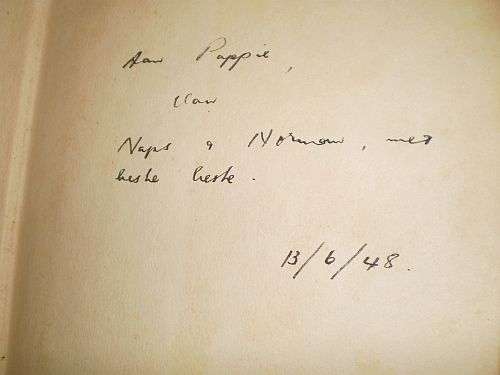 Aan Pappie,
Van
Naps & Norman, met
beste.
13/6/48.